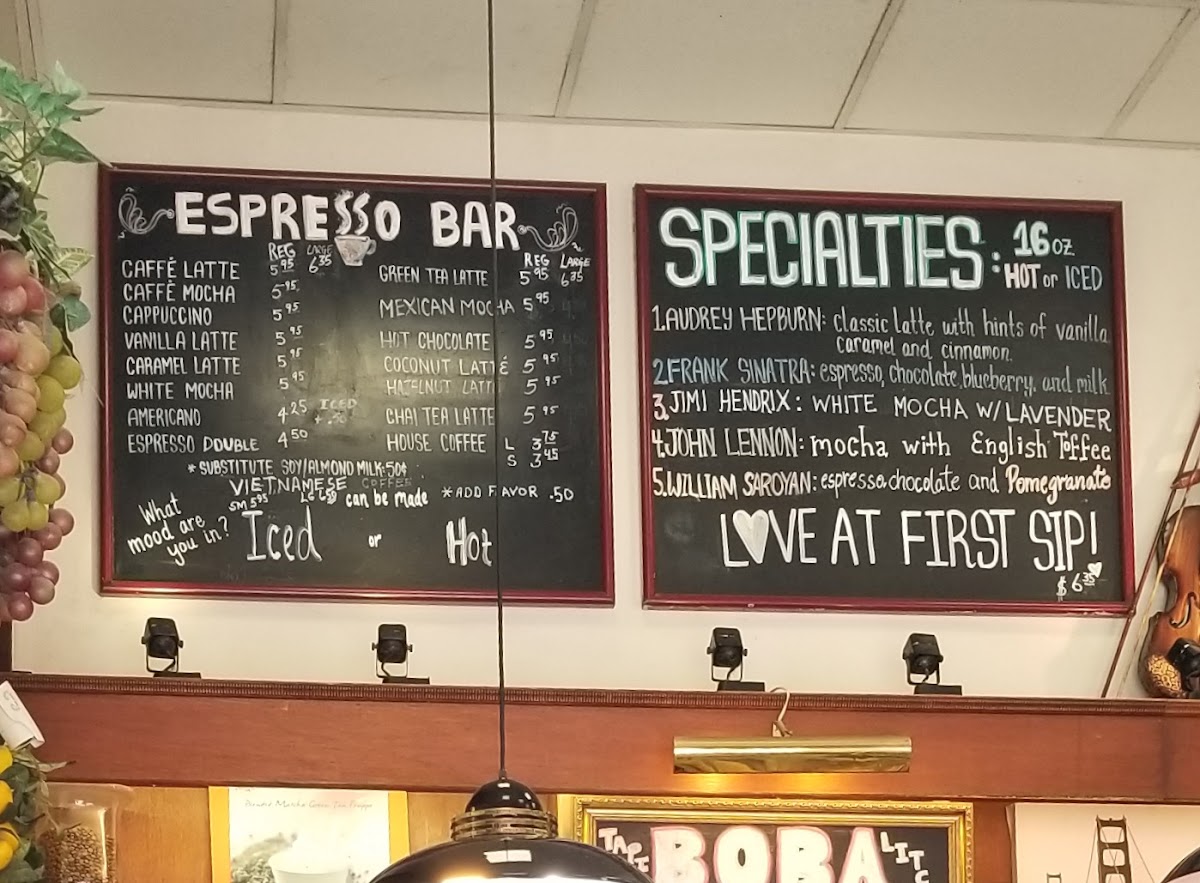 ESPRESSO BAR
REG LARGE
CAFFÉ LATTE 5.95 6.35
CAFFÉ MOCHA 5.95
CAPPUCCINO 5.95
VANILLA LATTE 5.95
CARAMEL LATTE 5.95
WHITE MOCHA 5.95
AMERICANO 4.25 ICED + .50
ESPRESSO DOUBLE 4.50
REG LARGE
GREEN TEA LATTE 5.95 6.35
MEXICAN MOCHA 5.95
HOT CHOCOLATE 5.95
COCONUT LATTÉ 5.95
HAZELNUT LATTE 5.95
CHAI TEA LATTE 5.95
HOUSE COFFEE L 3.75
S 3.45
*SUBSTITUTE SOY/ALMOND MILK.50¢
VIETNAMESE COFFEE
SM 5.95 LG
can be made
*ADD FLAVOR .50
What
mood are
you in?
Iced or Hot
SPECIALTIES: 16 oz
HOT or ICED
1.AUDREY HEPBURN: classic latte with hints of vanilla
caramel and cinnamon.
2.FRANK SINATRA: espresso, chocolate, blueberry, and milk
3.JIMI HENDRIX: WHITE MOCHA W/LAVENDER
4.JOHN LENNON: mocha with English Toffee
5.WILLIAM SAROYAN: espresso, chocolate and Pomegranate
LOVE AT FIRST SIP!
$6.35
BOBA